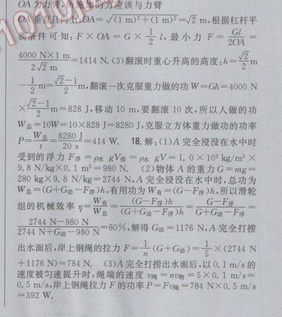 OA为力臂
垂直向上,OA=√(1 m)²+(1 m)²=√2 m,根据杠杆平
衡条件可知:F×OA=G×1/2 l,最小力F=Gl/2OA=
4000 N×1 m/2√2 m=1414 N.(3)翻滚时重心升高的高度:h=√2/2 m
-1/2 m=√2-1/2 m,翻滚一次克服重力做的功W=Gh=4000 N
×√2-1/2 m=828 J,移动10 m,要翻滚10次,所以人做的功
W总=10W=10×828 J=8280 J,克服立方体重力做功的功率
P=W总/t=8280 J/20 s=414 W. 18.解:(1)A完全浸没在水中时
受到的浮力F浮=ρ水gV排=ρ水gV=1.0×10³ kg/m³×
9.8 N/kg×0.1 m³=980 N. (2)物体A的重力G=mg=
280 kg×9.8 N/kg=2744 N,A完全浸没在水中时,总功为
W总=(G+G动-F浮)h,有用功为W有=(G-F浮)h,所以滑轮
组的机械效率η=W有/W总=(G-F浮)h/(G+G动-F浮)h=G-F浮/G+G动-F浮=
2744 N-980 N/2744 N+G动-980 N=60%,解得G动=1176 N,A完全打捞
出水面后,岸上钢绳的拉力F=1/n(G+G动)=1/5×(2744 N
+1176 N)=784 N. (3)A完全打捞出水面后,以0.1 m/s的
速度被匀速提升时,绳端的速度v绳=nv物=5×0.1 m/s=
0.5 m/s,岸上钢绳拉力F的功率P=Fv绳=784 N×0.5 m/s
=392 W.